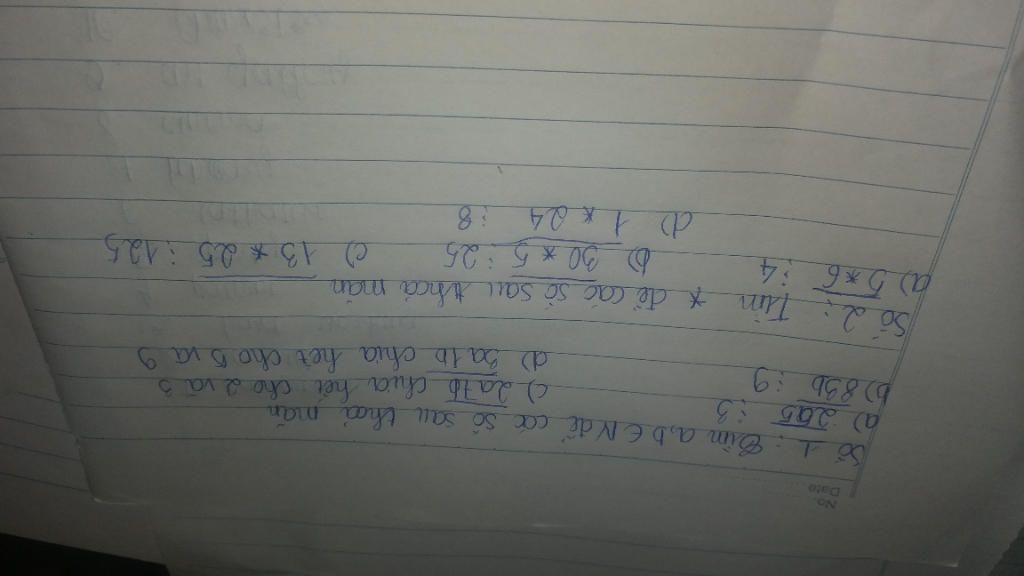 No.
Date
Số 1 : Tìm a, b ∈ N để các số sau thoả mãn
a) 2a5 ⋮ 3 c) 2a7b chia hết cho 2 và 3
b) 83b ⋮ 9 d) 3a1b chia hết cho 5 và 9
Số 2 : Tìm * để các số sau thoả mãn
a) 5*6 ⋮ 4 b) 30*5 ⋮ 25 c) 13*25 ⋮ 125
d) 1*24 ⋮ 8